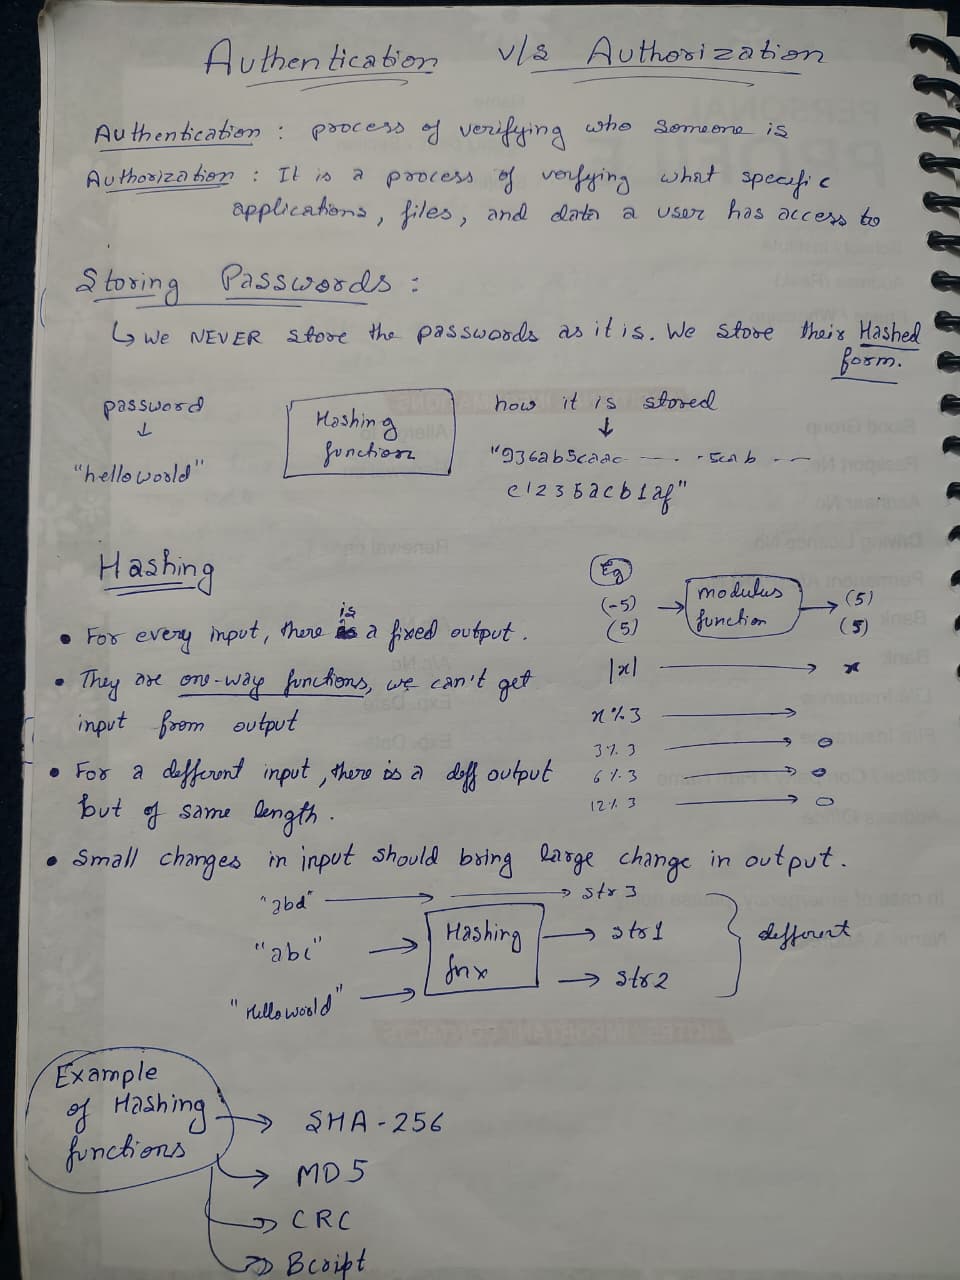 Authentication v/s Authorization
Authentication : process of verifying who someone is
Authorization : It is a process of verfying what specific
applications, files, and data a user has access to
Storing Passwords :
↳ We NEVER store the passwords as it is. We store their Hashed
form.
password
↓
"helloworld"
Hashing
function
how it is stored
↓
"936ab5caac ---- -5cab ---
c1235acb1af"
Hashing
• For every input, there is a fixed output.
• They are one-way functions, we can't get
input from output
• For a different input, there is a diff output
but of same length.
Eg
(-5) → modulus → (5)
(5) function (5)
|x| → x
x%3 →
3%3 → 0
6%3 → 0
12%3 → 0
• Small changes in input should bring large change in output.
"abd" → → str3
"abc" → Hashing → str1
"Helloworld" → fnx → str2
different
Example
of Hashing
functions
→ SHA-256
→ MD5
→ CRC
→ Bcript